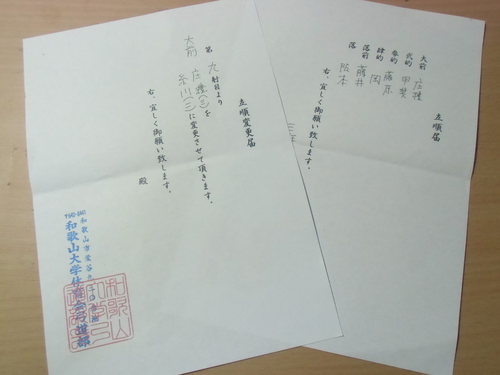 立順届
大前 庄種
弐的 甲斐
参的 藤原
肆的 岡
落前 藤井
落 阪本
右、宜しく御願い致します。
立順変更届
第九射目より
大前 庄種(三)を
糸川(三)に変更させて頂きます。
右、宜しく御願い致します。
殿
〒640-8441
和歌山市栄谷九三〇番地
和歌山大学体育会弓道部